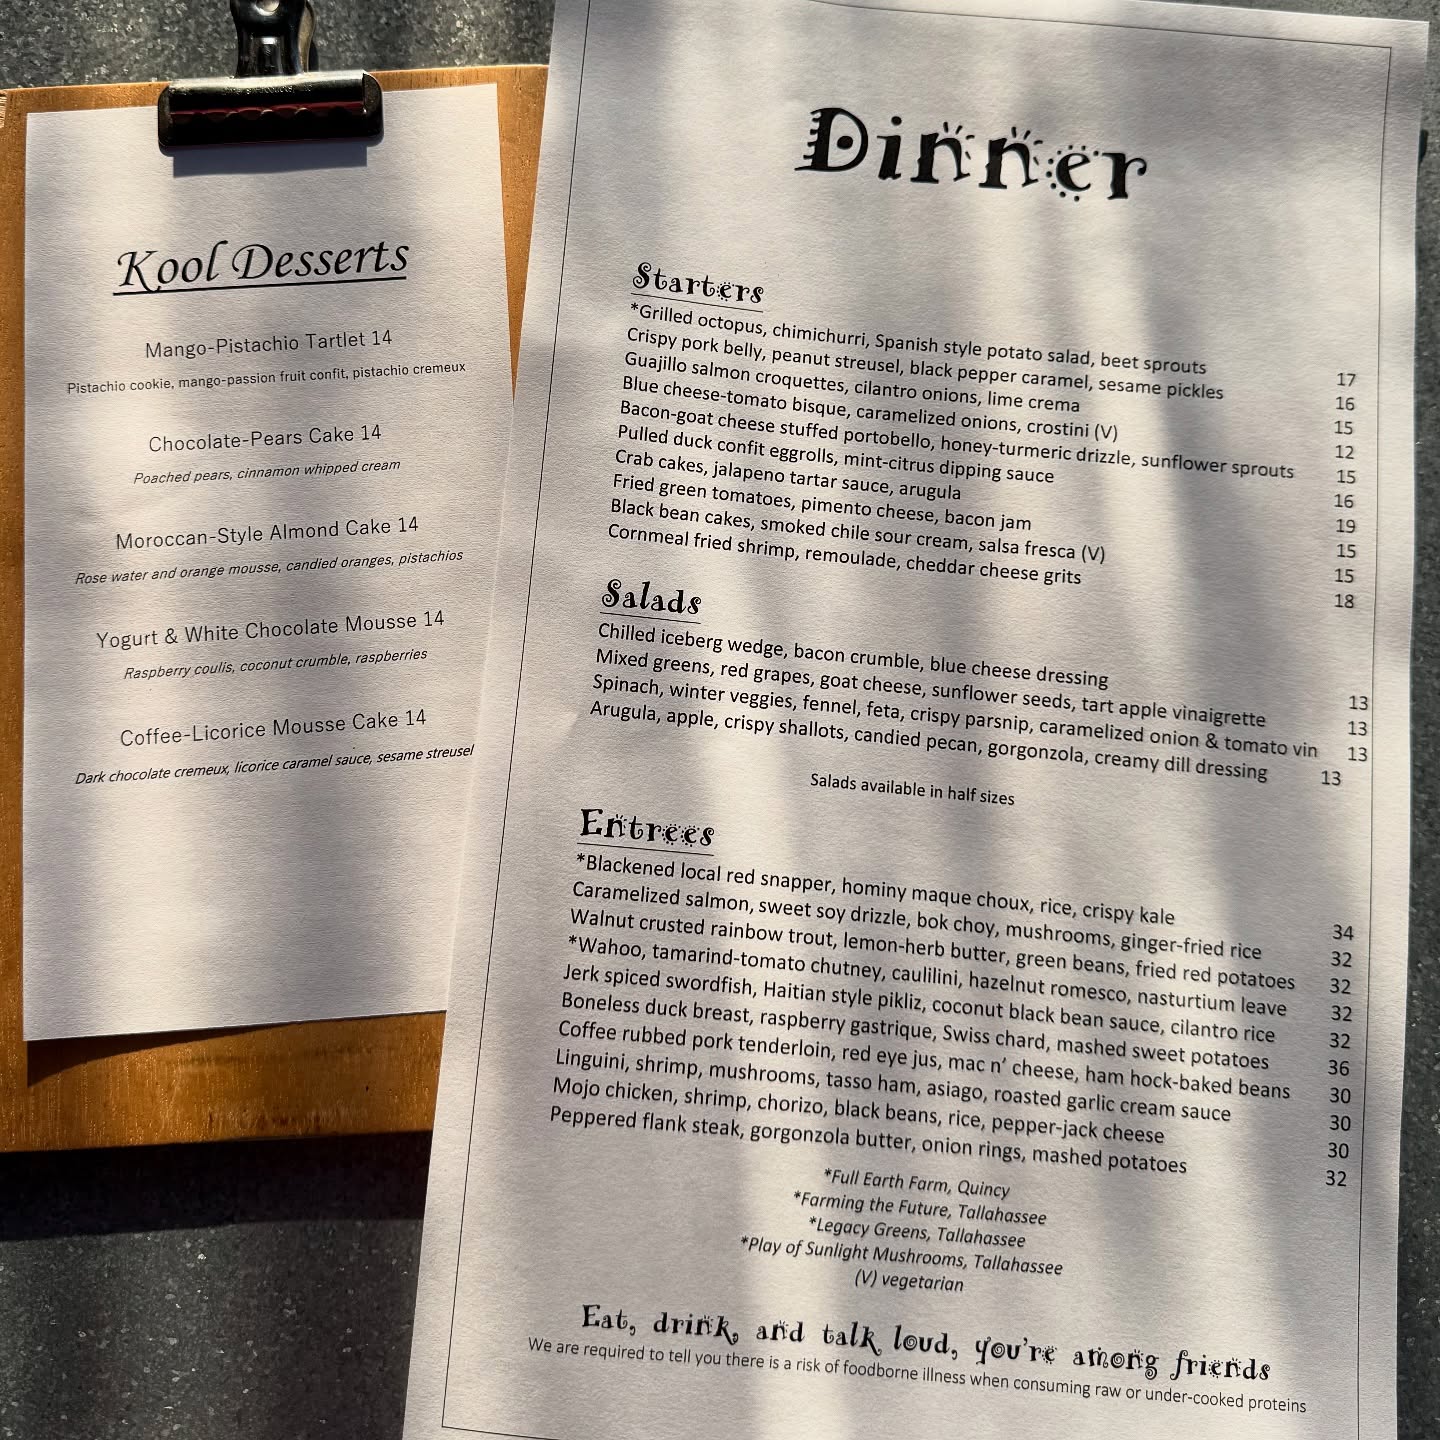 Kool Desserts
Mango-Pistachio Tartlet 14
Pistachio cookie, mango-passion fruit confit, pistachio cremeux
Chocolate-Pears Cake 14
Poached pears, cinnamon whipped cream
Moroccan-Style Almond Cake 14
Rose water and orange mousse, candied oranges, pistachios
Yogurt & White Chocolate Mousse 14
Raspberry coulis, coconut crumble, raspberries
Coffee-Licorice Mousse Cake 14
Dark chocolate cremeux, licorice caramel sauce, sesame streusel
Dinner
Starters
*Grilled octopus, chimichurri, Spanish style potato salad, beet sprouts 17
Crispy pork belly, peanut streusel, black pepper caramel, sesame pickles 16
Guajillo salmon croquettes, cilantro onions, lime crema 15
Blue cheese-tomato bisque, caramelized onions, crostini (V) 12
Bacon-goat cheese stuffed portobello, honey-turmeric drizzle, sunflower sprouts 15
Pulled duck confit eggrolls, mint-citrus dipping sauce 16
Crab cakes, jalapeno tartar sauce, arugula 19
Fried green tomatoes, pimento cheese, bacon jam 15
Black bean cakes, smoked chile sour cream, salsa fresca (V) 15
Cornmeal fried shrimp, remoulade, cheddar cheese grits 18
Salads
Chilled iceberg wedge, bacon crumble, blue cheese dressing 13
Mixed greens, red grapes, goat cheese, sunflower seeds, tart apple vinaigrette 13
Spinach, winter veggies, fennel, feta, crispy parsnip, caramelized onion & tomato vin 13
Arugula, apple, crispy shallots, candied pecan, gorgonzola, creamy dill dressing 13
Salads available in half sizes
Entrees
*Blackened local red snapper, hominy maque choux, rice, crispy kale 34
Caramelized salmon, sweet soy drizzle, bok choy, mushrooms, ginger-fried rice 32
Walnut crusted rainbow trout, lemon-herb butter, green beans, fried red potatoes 32
*Wahoo, tamarind-tomato chutney, caulilini, hazelnut romesco, nasturtium leave 32
Jerk spiced swordfish, Haitian style pikliz, coconut black bean sauce, cilantro rice 32
Boneless duck breast, raspberry gastrique, Swiss chard, mashed sweet potatoes 36
Coffee rubbed pork tenderloin, red eye jus, mac n' cheese, ham hock-baked beans 30
Linguini, shrimp, mushrooms, tasso ham, asiago, roasted garlic cream sauce 30
Mojo chicken, shrimp, chorizo, black beans, rice, pepper-jack cheese 30
Peppered flank steak, gorgonzola butter, onion rings, mashed potatoes 32
*Full Earth Farm, Quincy
*Farming the Future, Tallahassee
*Legacy Greens, Tallahassee
*Play of Sunlight Mushrooms, Tallahassee
(V) vegetarian
Eat, drink, and talk loud, you're among friends
We are required to tell you there is a risk of foodborne illness when consuming raw or under-cooked proteins